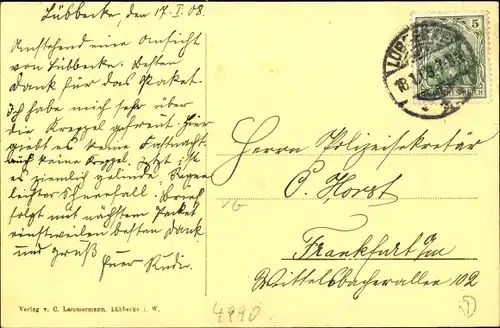 Lübbecke, den 17.I.08.
Anstehend eine Ansicht
von Lübbecke. Besten
Dank für das Paket.
Ich habe mich sehr über
die Kreppel gefreut. Hier
giebt es keine Fastnacht
auch keine Kreppel. Jetzt ist
es ziemlich gelinde, Regen
leichter Schneefall. Brief
folgt mit nächstem Paket
einstweilen besten Dank
und Gruß
Euer Rudi.
5
LÜBBECKE
18.1.08
DEUTSCHES REICH
Herrn Polizeisekretär
C. Horst
Frankfurt a/m
Wittelsbacherallee 102
Verlag v. C. Lammermann, Lübbecke i. W.
4990
7